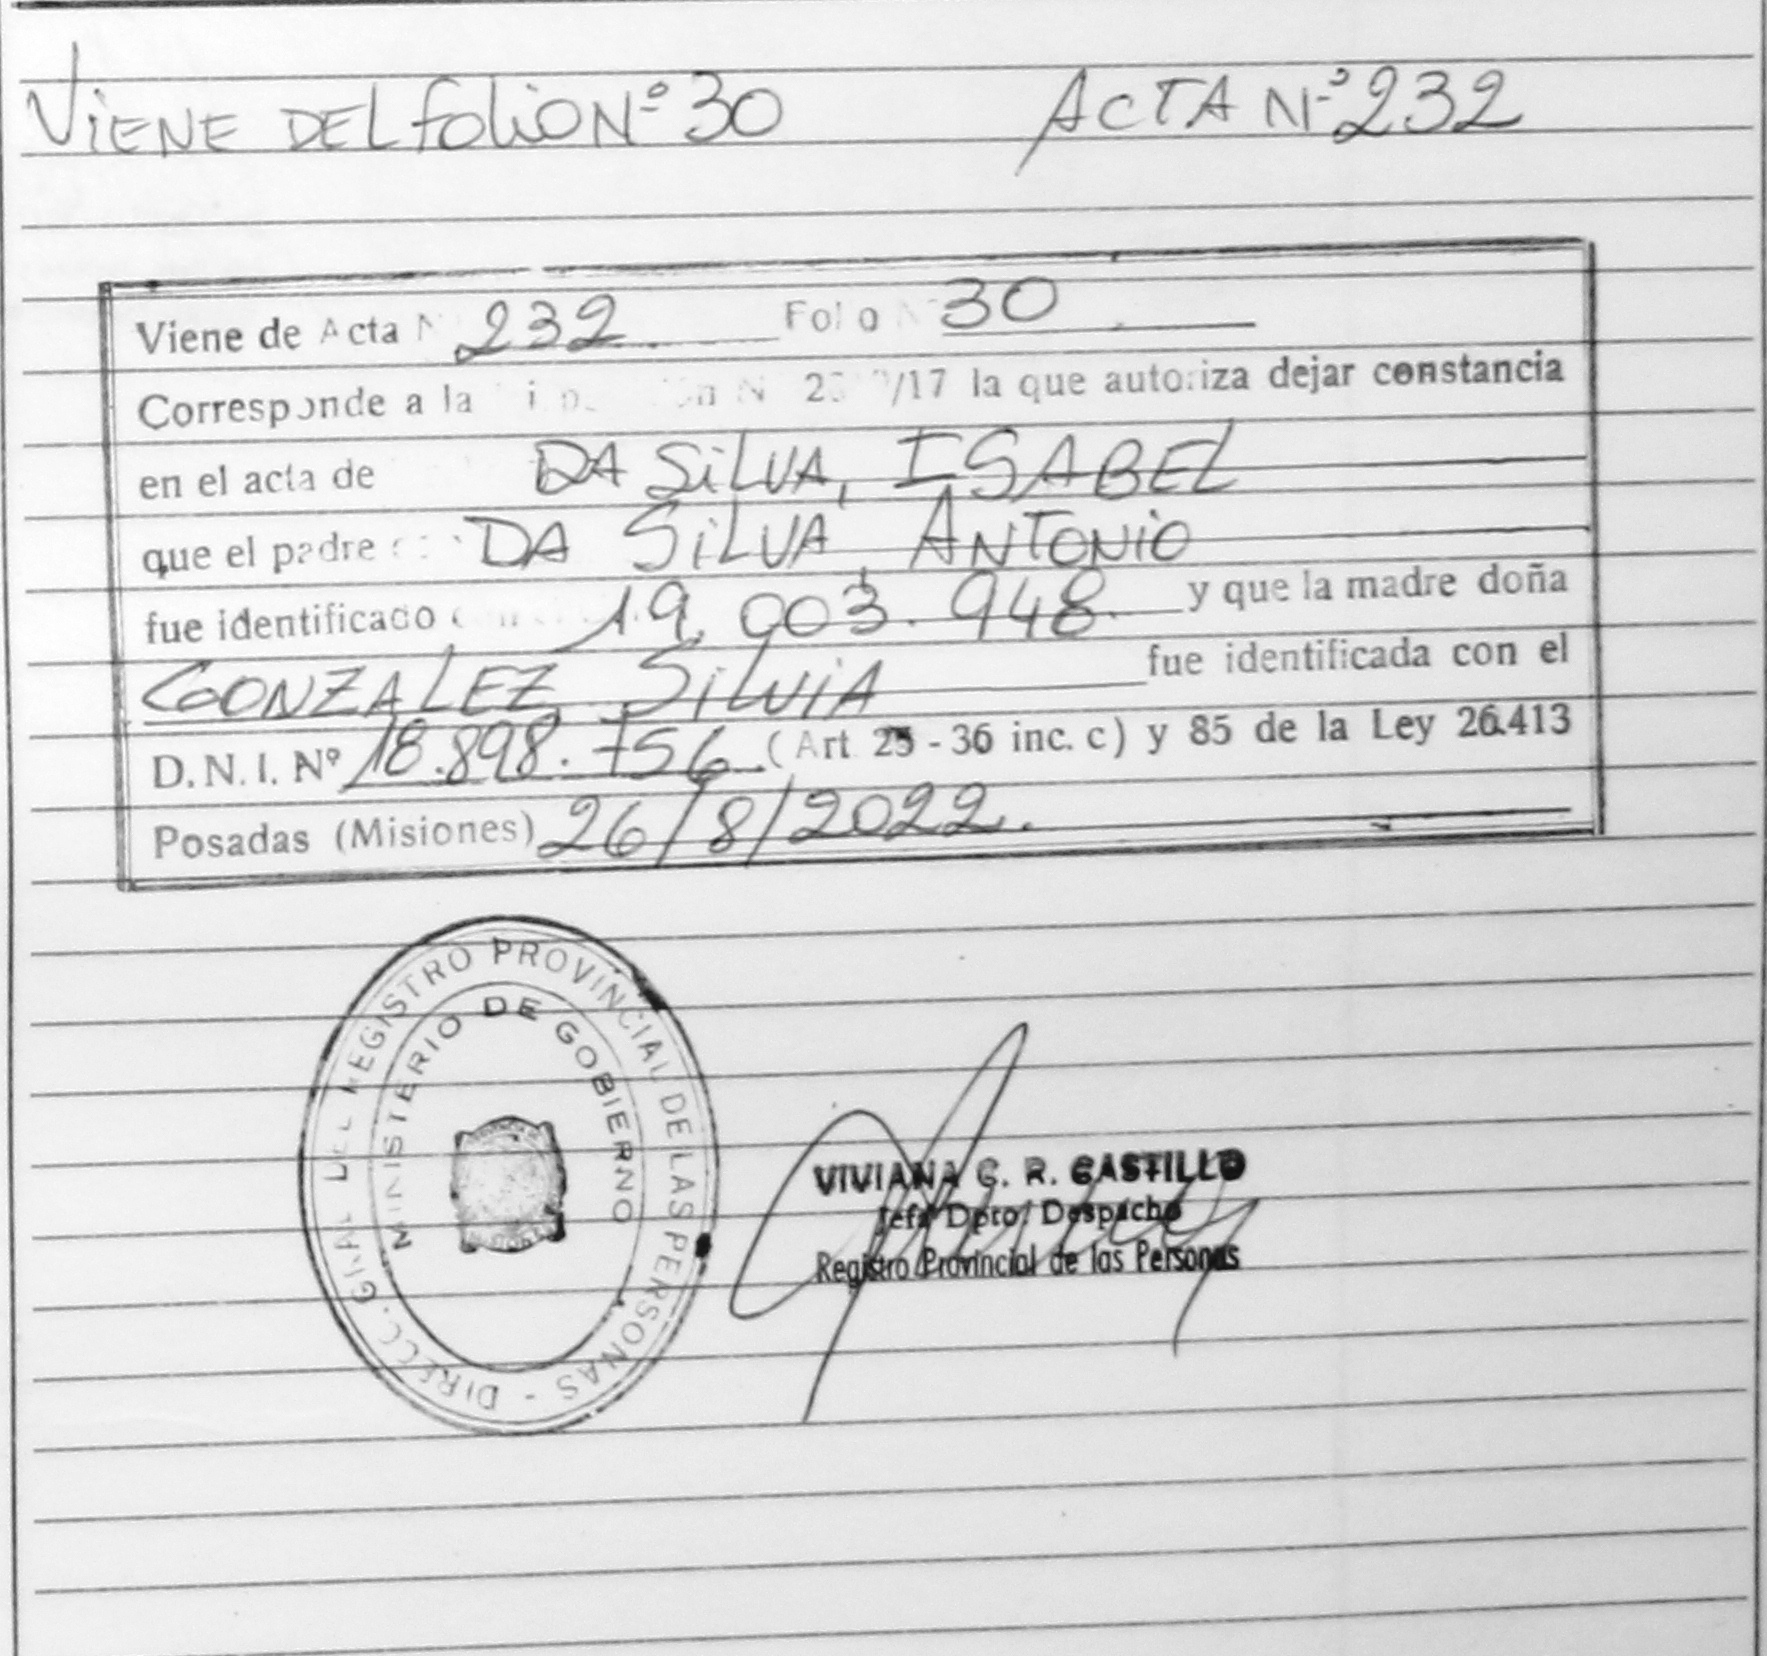 VIENE DEL folio Nº 30 ACTA Nº 232
Viene de Acta N 232. Folio N 30
Corresponde a la /17 la que autoriza dejar constancia
en el acta de DA SILVA, ISABEL
que el padre DA SILVA, ANTONIO
fue identificado 19.003.948. y que la madre doña
GONZALEZ, SILVIA fue identificada con el
D.N.I. Nº 18.898.756 (Art. 25 - 36 inc. c) y 85 de la Ley 26.413
Posadas (Misiones) 26/8/2022.
DIRECC. GRAL DEL REGISTRO PROVINCIAL DE LAS PERSONAS -
MINISTERIO DE GOBIERNO
VIVIANA G. R. CASTILLO
Jefa Dpto. Despacho
Registro Provincial de las Personas